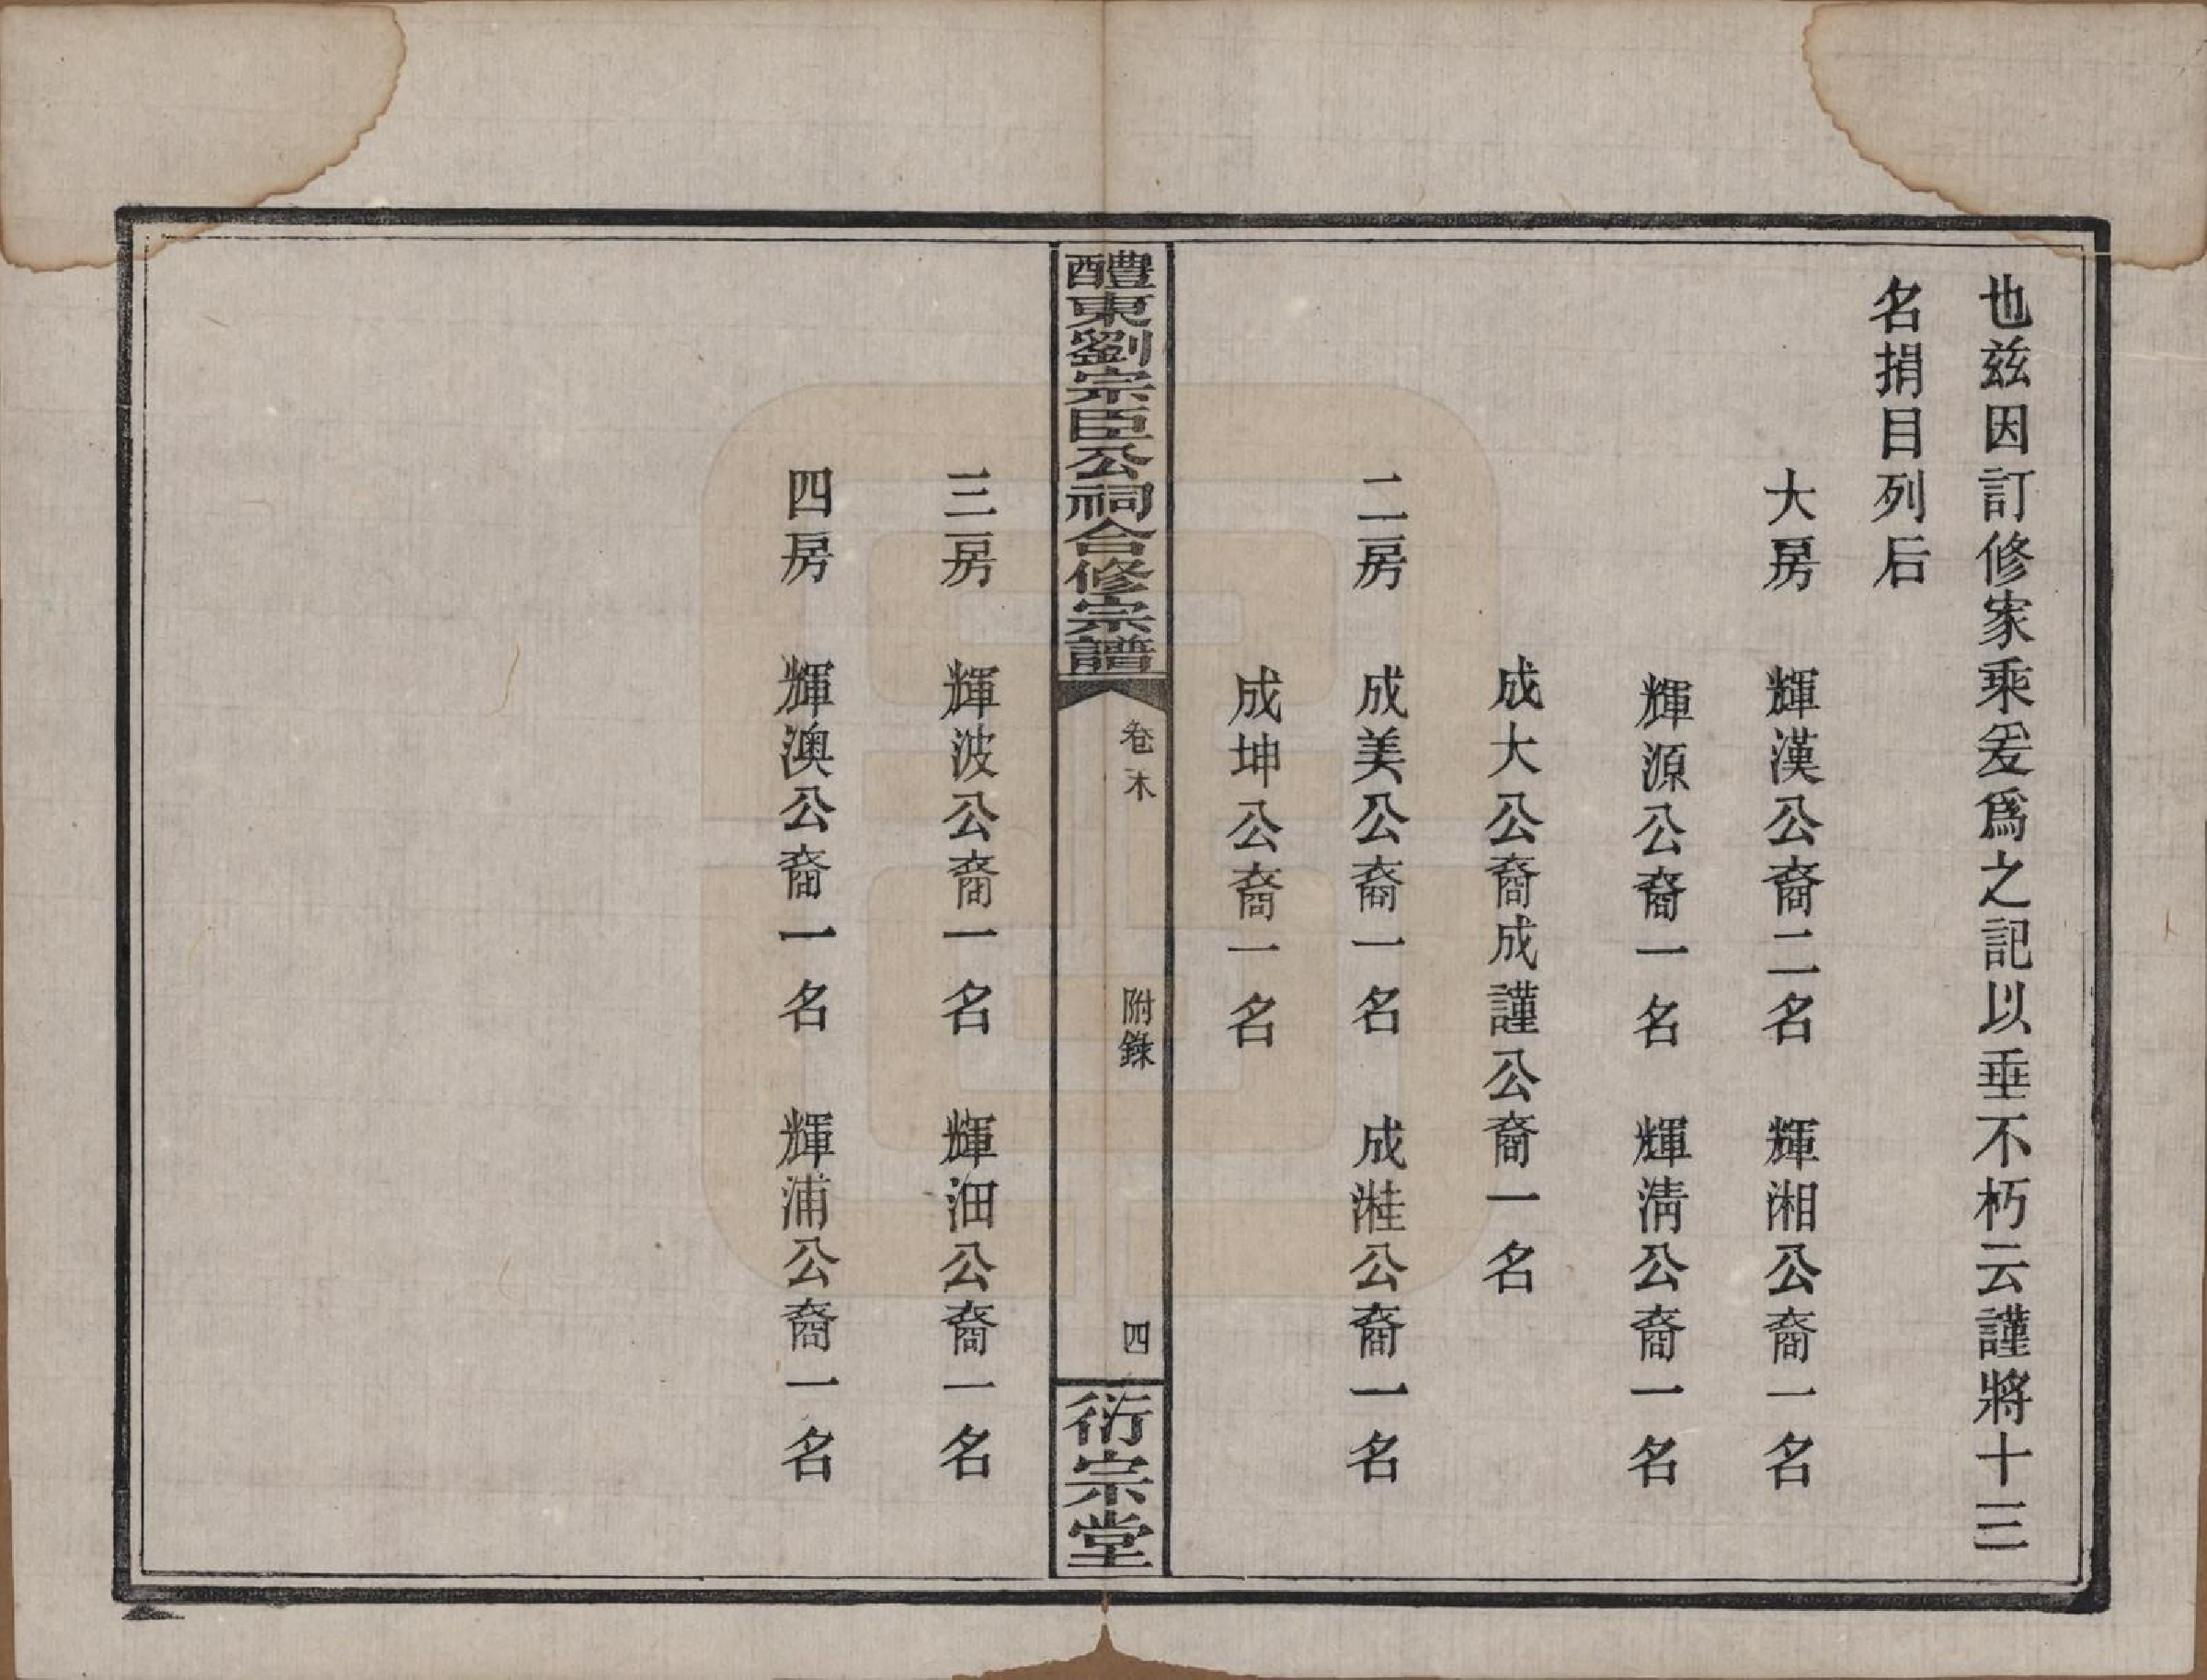 也兹因訂修家乘爰爲之記以垂不朽云謹將十三
名捐目列后
大房　輝漢公裔二名　輝湘公裔一名
輝源公裔一名　輝淸公裔一名
成大公裔成謹公裔一名
二房　成美公裔一名　成溎公裔一名
成坤公裔一名
醴東劉宗臣公祠合修宗譜
卷末
附錄
四
衍宗堂
三房　輝波公裔一名　輝沺公裔一名
四房　輝澳公裔一名　輝浦公裔一名